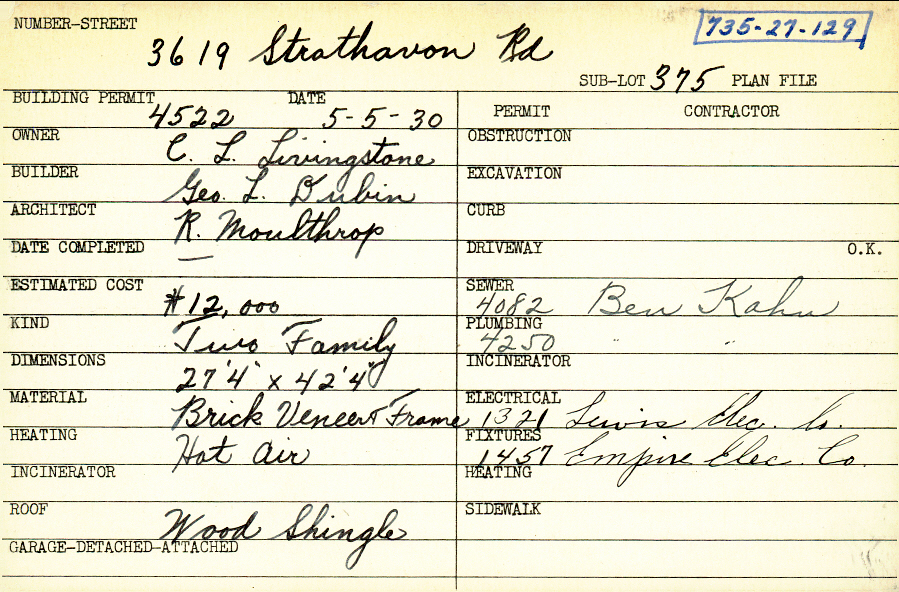 NUMBER-STREET
3619 Strathavon Rd
735-27-129
SUB-LOT 375 PLAN FILE
BUILDING PERMIT 4522 DATE 5-5-30
OWNER C. L. Livingstone
BUILDER Geo. L. Dubin
ARCHITECT R. Moulthrop
DATE COMPLETED —
ESTIMATED COST $12,000
KIND Two Family
DIMENSIONS 27'4" x 42'4"
MATERIAL Brick Veneer & Frame
HEATING Hot Air
INCINERATOR
ROOF Wood Shingle
GARAGE-DETACHED-ATTACHED
PERMIT CONTRACTOR
OBSTRUCTION
EXCAVATION
CURB
DRIVEWAY O.K.
SEWER 4082 Ben Kahn
PLUMBING 4250 " "
INCINERATOR
ELECTRICAL 1321 Lewis Elec. Co.
FIXTURES 1457 Empire Elec. Co.
HEATING
SIDEWALK